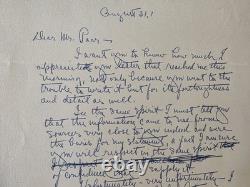 August 31,
Dear Mr. Paar,
I want you to know how much I
appreciate your letter that reached me this
morning, not only because you went to the
trouble to write it but for its forthrightness
and detail as well.
In the same spirit I must tell you
that the information came to me from
sources very close to you indeed and were
the basis for my statement, a fact I am sure
you will respect in the same spirit
of confidence supply it.
Unfortunately - very unfortunately - I